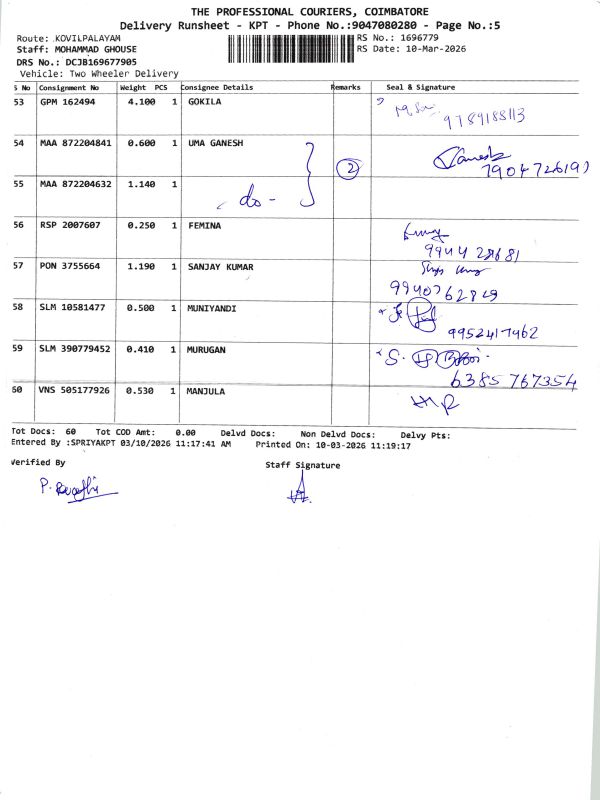 THE PROFESSIONAL COURIERS, COIMBATORE
Delivery Runsheet - KPT - Phone No.:9047080280 - Page No.:5
Route: KOVILPALAYAM RS No.: 1696779
Staff: MOHAMMAD GHOUSE RS Date: 10-Mar-2026
DRS No.: DCJB169677905
Vehicle: Two Wheeler Delivery
S No Consignment No Weight PCS Consignee Details Remarks Seal & Signature
53 GPM 162494 4.100 1 GOKILA
9789188113
54 MAA 872204841 0.600 1 UMA GANESH 2 Ganesh
7904726197
55 MAA 872204632 1.140 1
- do -
56 RSP 2007607 0.250 1 FEMINA
57 PON 3755664 1.190 1 SANJAY KUMAR
58 SLM 10581477 0.500 1 MUNIYANDI
9952417462
59 SLM 390779452 0.410 1 MURUGAN
6385767354
60 VNS 505177926 0.530 1 MANJULA
Tot Docs: 60 Tot COD Amt: 0.00 Delvd Docs: Non Delvd Docs: Delvy Pts:
Entered By :SPRIYAKPT 03/10/2026 11:17:41 AM Printed On: 10-03-2026 11:19:17
Verified By Staff Signature